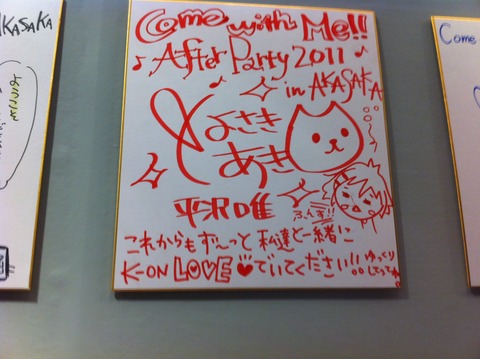 Come with Me!!
♪ After Party 2011 ♪
♪ in AKASAKA
とよさき
あき
平沢唯
ふんす!!
これからもず〜っと私達と一緒に
K-ON LOVE♥でいてください!!
ゆっくり
してってね
AKASAKA
Come